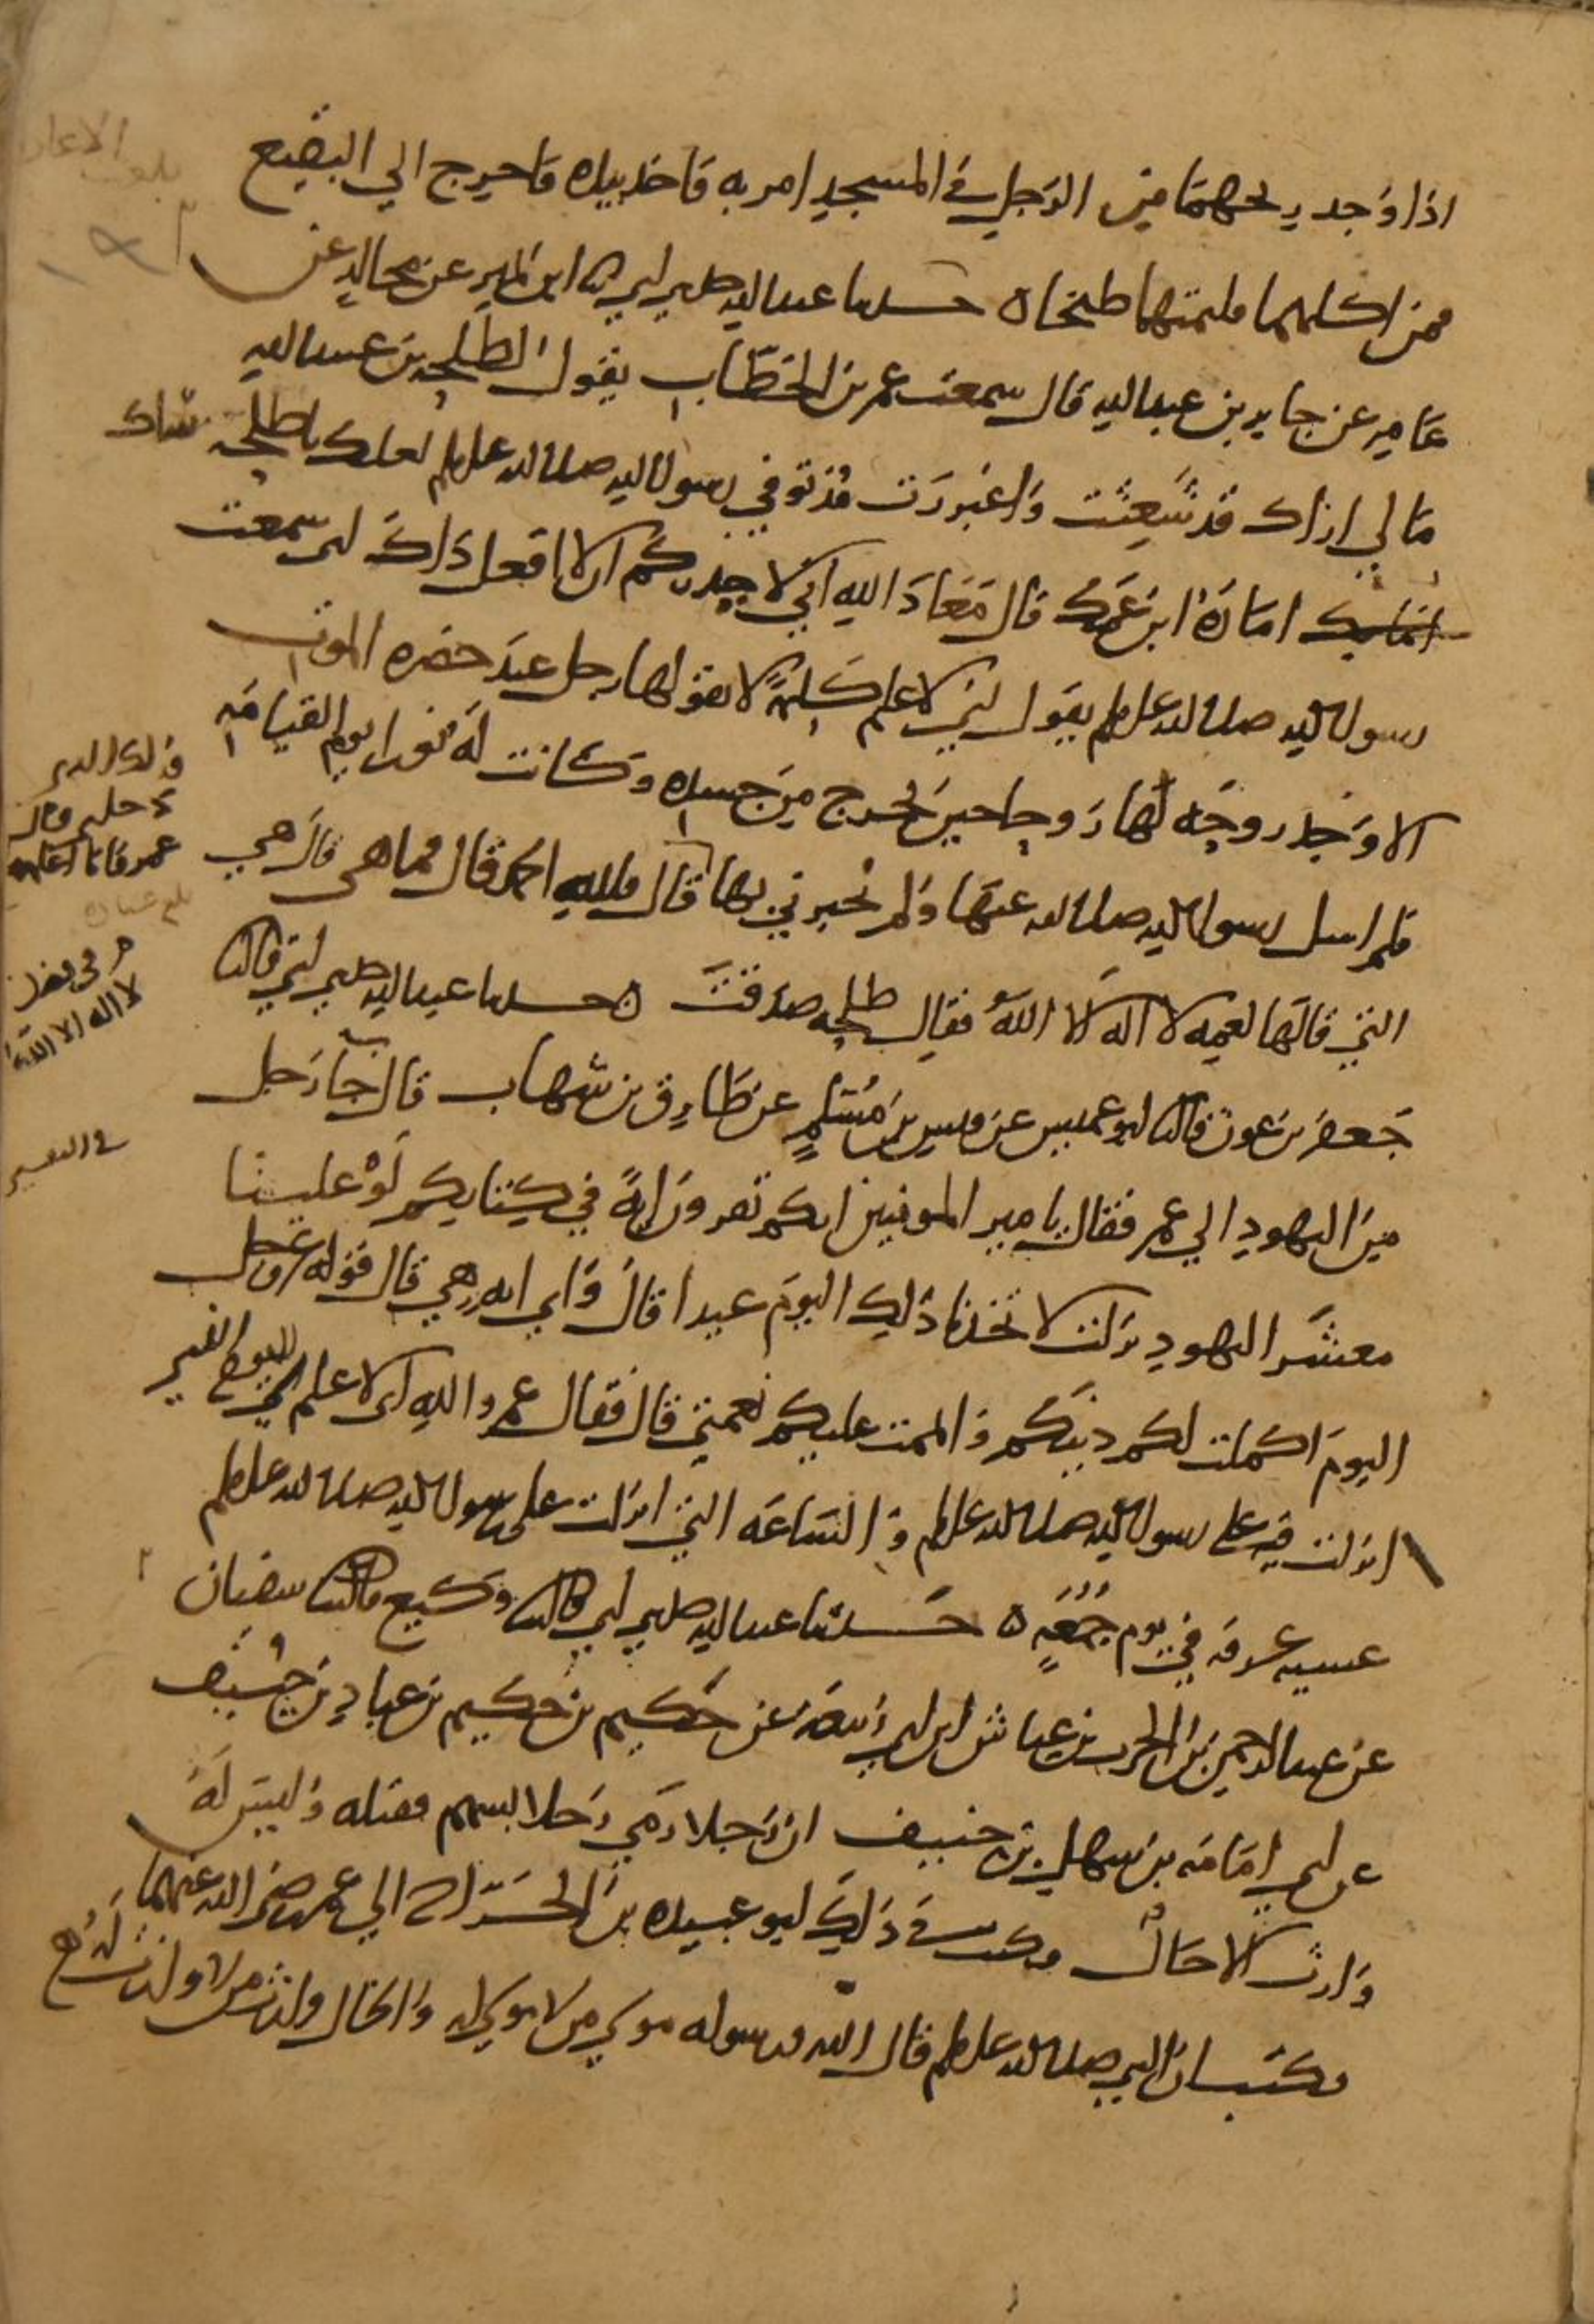 اذا وجد ريحهما من الرجل في المسجد امر به فاخذ بيده فاخرج الي البقيع
فمن اكلهما فليمتهما طبخا ه حدثنا عبد الله حدثني ابي ثنا ابن نمير عن مجالد عن
عامر عن جابر بن عبد الله قال سمعت عمر بن الخطاب يقول لطلحه بن عبيد الله
ما لي اراك قد شعثت واغبررت مذ توفي رسول الله صلى الله عليه وسلم لعلك يا طلحه ساك
امارة ابن عمك قال معاذ الله اني لاجدركم ان لا افعل ذاك اني سمعت
رسول الله صلى الله عليه وسلم يقول اني لاعلم كلمة لا يقولها رجل عند حضره الموت
الا وجد روحه لها روحا حين تخرج من جسده وكانت له نورا يوم القيامه
فلم اسل رسول الله صلى الله عنها ولم يخبرني بها قال فلله الحمد قال فما هي قال هي
التي قالها لعمه لا اله الا الله فقال طلحه صدقت ه حدثنا عبد الله حدثني ابي قال ثنا
جعفر بن عون قال ثنا ابو عميس عن قيس بن مسلم عن طارق بن شهاب قال جا رجل
من اليهود الي عمر فقال يا مير المومنين انكم تقرون اية في كتابكم لو علينا
معشر اليهود نزلت لاتخذنا ذلك اليوم عيدا قال واي ايه هي قال قوله عز وجل
اليوم اكملت لكم دينكم واتممت عليكم نعمتي قال فقال عمر والله اني لاعلم اليوم التي
انزلت فيه على رسول الله صلى الله عليه وسلم والساعه التي انزلت على رسول الله صلى الله عليه وسلم
عشيه عرفه في يوم جمعة ه حدثنا عبد الله حدثني ابي قال ثنا وكيع قال ثنا سفيان
عن عبد الرحمن بن الحرث بن عياش ابن ابي ربيعه عن حكيم بن حكيم بن عباد بن حنيف
عن ابي امامه بن سهل بن حنيف ان رجلا رمي رجلا بسهم فقتله وليس له
وارث الا خال وكتب في ذلك ابو عبيده بن الجراح الي عمر رضي الله عنهما
فكتب ان النبي صلى الله عليه وسلم قال الله ورسوله مولي من لا مولي له والخال وارث من لا وارث له
قال
عمر فانا اعلم
لا اله الا الله